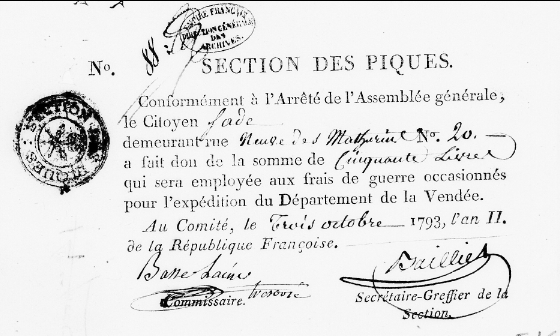 EMPIRE FRANÇAIS
DIRECTION GÉNÉRALE
DES
ARCHIVES.
No. 88 SECTION DES PIQUES.
SECTION DES PIQUES
Conformément à l'Arrêté de l'Assemblée générale,
le Citoyen Sade
demeurant rue Neuve des Mathurins No. 20
a fait don de la somme de Cinquante Livres
qui sera employée aux frais de guerre occasionnés
pour l'expédition du Département de la Vendée.
Au Comité, le Trois octobre 1793, l'an II.
de la République Françoise.
Commissaire.
Secrétaire-Greffier de la
Section.